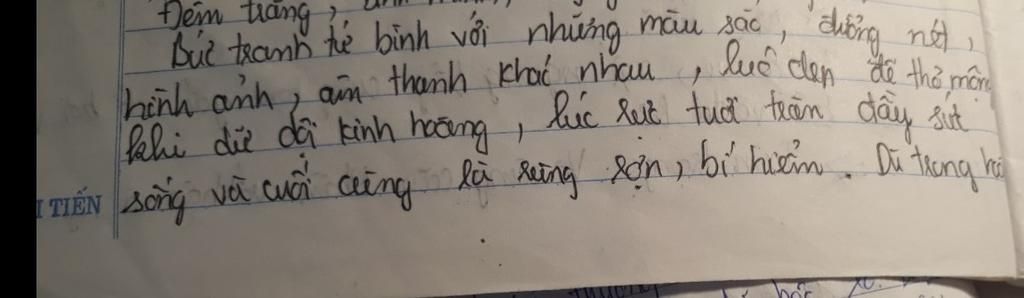 Đêm trăng,
Bức tranh tứ bình với những màu sắc, đường nét,
hình ảnh, âm thanh khác nhau, lúc đẹp đẽ thơ mộng
khi dữ dội kinh hoàng, lúc rực tươi tràn đầy sức
sống và cuối cùng là rùng rợn, bí hiểm. Dù trong
I TIẾN